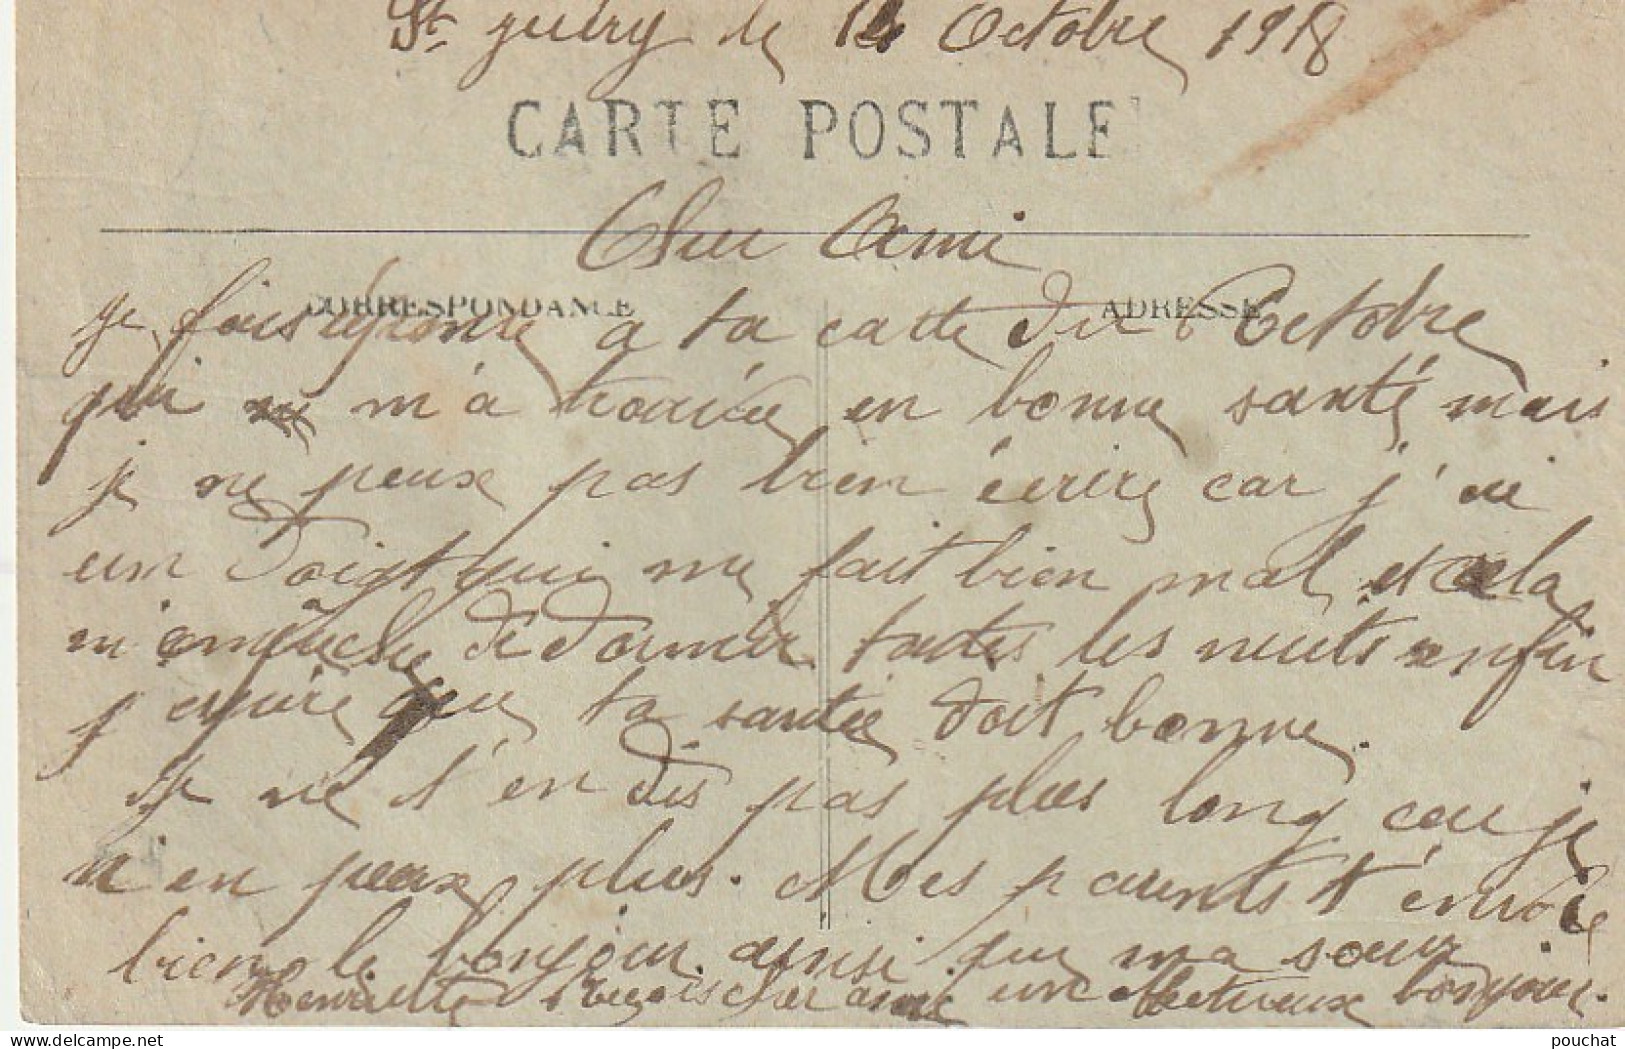 St Juéry le 14 Octobre 1918
CARTE POSTALE
Cher Ami
CORRESPONDANCE
ADRESSE
Je fais réponse a ta carte du 6 Octobre
qui m'a trouvée en bonne santé mais
je ne peux pas bien écrire car j'ai
un doigt qui me fait bien mal et cela
m'empêche de dormir toutes les nuits enfin
j'espère que ta santée doit bonne.
Je ne t'en dis pas plus long car je
n'en peux plus. Mes parents t'envoie
bien le bonjour ainsi que ma sœur
Henriette Reçois cher ami un bonjour.
pouchat